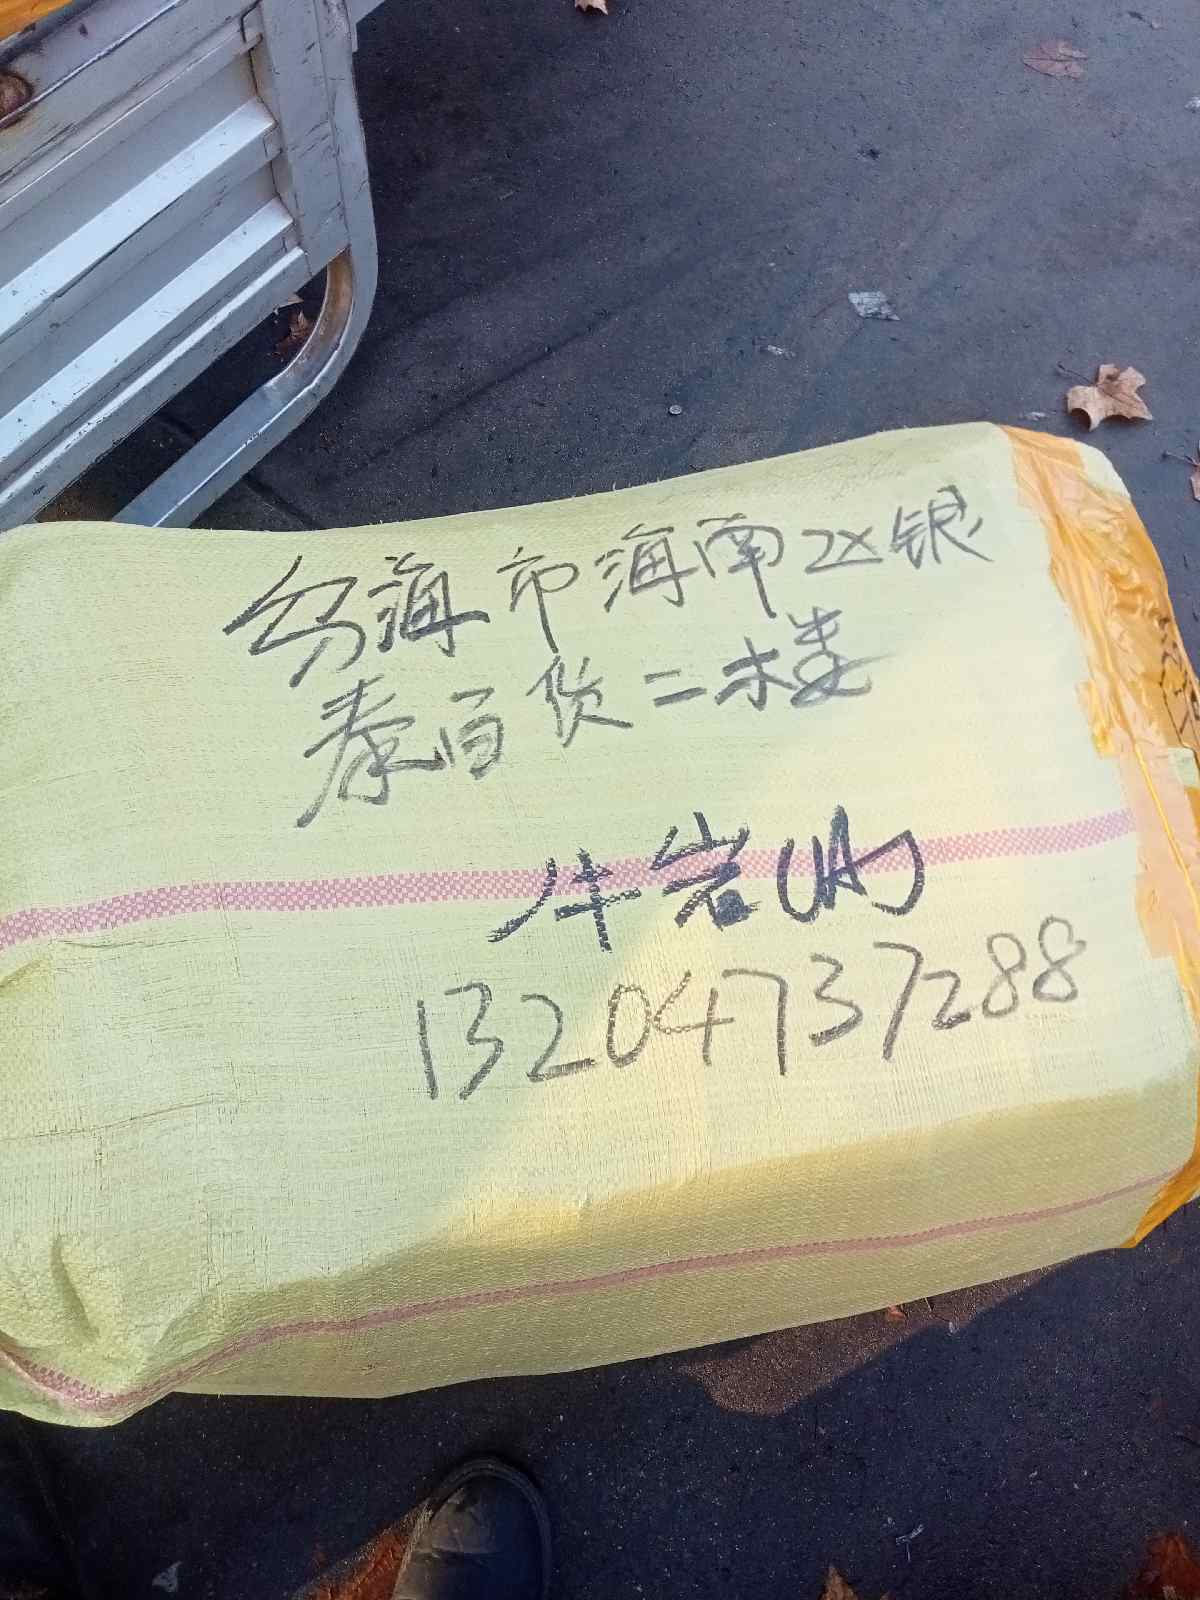 乌海市海南区银
泰百货二楼
牛岩(收)
13204737288